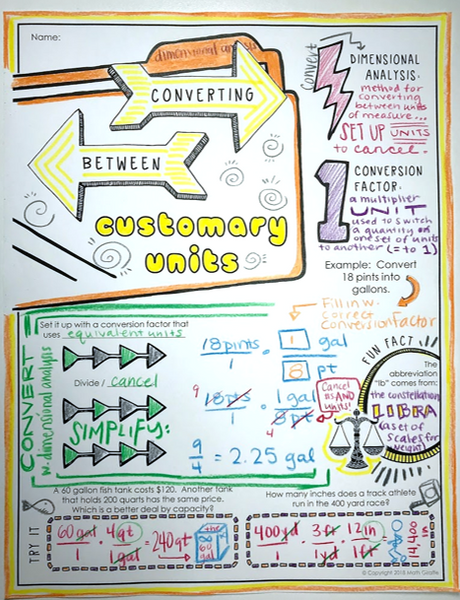 Name:
dimensional analysis
CONVERTING
BETWEEN
customary
units
convert
DIMENSIONAL
ANALYSIS:
method for
converting
between units
of measure...
SET UP UNITS
to cancel.
1
CONVERSION
FACTOR:
a multiplier
UNIT
used to switch
a quantity on
one set of units
to another (= to 1)
Example: Convert
18 pints into
gallons.
Fill in w.
correct
conversion factor
CONVERT
w. dimensional analysis
Set it up with a conversion factor that
uses equivalent units
Divide / cancel
SIMPLIFY:
18 pints
1
1 gal
8 pt
9
18 pts
1
1 gal
8 pt
4
Cancel
#s AND
units!
9/4 = 2.25 gal
FUN FACT
The
abbreviation
"lb" comes from:
the constellation
LIBRA
(a set of
scales for
weight)
TRY IT
A 60 gallon fish tank costs $120. Another tank
that holds 200 quarts has the same price.
Which is a better deal by capacity?
60 gal/1 · 4 qt/1 gal = 240 qt
the
60
gal
How many inches does a track athlete
run in the 400 yard race?
400 yd/1 · 3 ft/1 yd · 12 in/1 ft = 14,400 in
© Copyright 2018 Math Giraffe